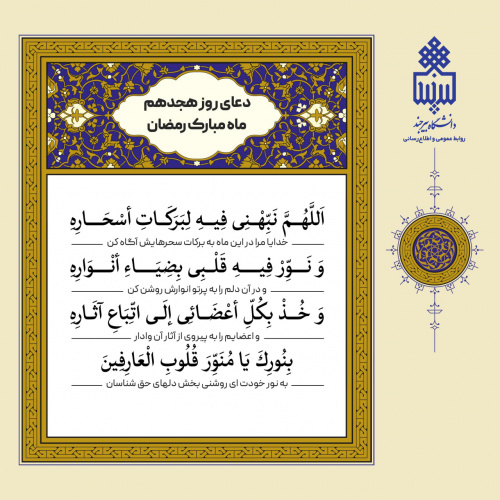 دعای روز هجدهم
ماه مبارک رمضان
اَللَّهُمَّ نَبِّهْنِی فِیهِ لِبَرَکَاتِ أَسْحَارِهِ
خدایا مرا در این ماه به برکات سحرهایش آگاه کن
وَ نَوِّرْ فِیهِ قَلْبِی بِضِیَاءِ أَنْوَارِهِ
و در آن دلم را به پرتو انوارش روشن کن
وَ خُذْ بِکُلِّ أَعْضَائِی إِلَی اتِّبَاعِ آثَارِهِ
و اعضایم را به پیروی از آثار آن وادار
بِنُورِكَ یَا مُنَوِّرَ قُلُوبِ الْعَارِفِینَ
به نور خودت ای روشنی بخش دلهای حق شناسان
دانشگاه بیرجند
روابط عمومی و اطلاع‌رسانی